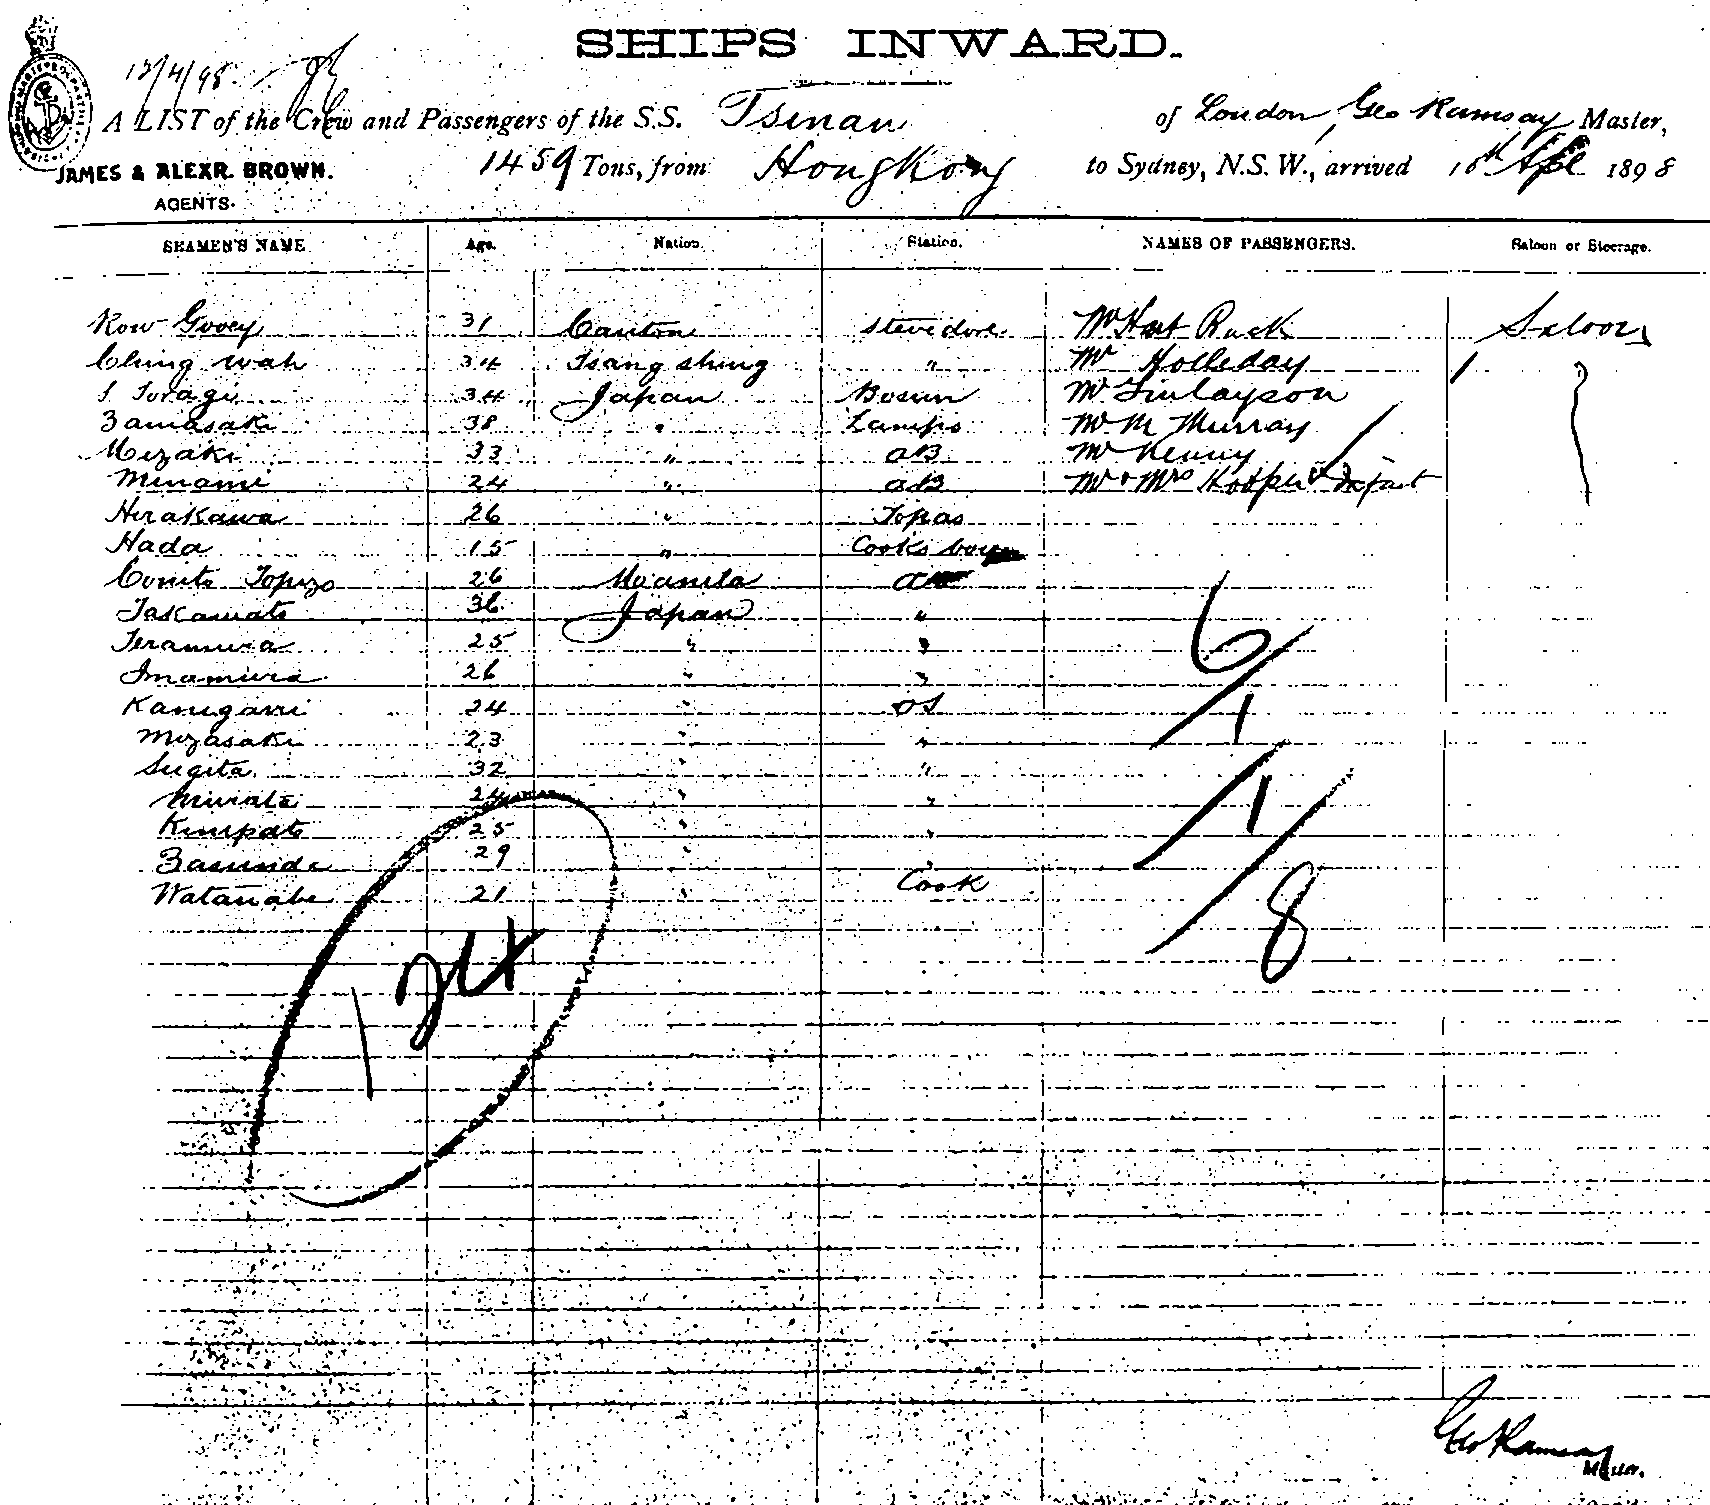 SHIPS INWARD.
12/4/98
A LIST of the Crew and Passengers of the S.S. Tsinan of London, Geo Ramsay Master,
JAMES & ALEXR. BROWN. 1459 Tons, from Hongkong to Sydney, N.S.W., arrived 10th Apl 1898
AGENTS.
SEAMEN'S NAME. Age. Nation. Station. NAMES OF PASSENGERS. Saloon or Steerage.
Kow Gooey 31 Canton Stevedore Mr Hart Buck Saloon
Ching Wah 34 Tsang Shing " Mr Holleday
Toragi 34 Japan Bosun Mr Finlayson
Zamasaki 38 " Lamps Mr M Murray
Mizaki 33 " AB Mr Kenny
Minami 24 " AB Mr & Mrs Hooper & Infant
Hirakawa 26 " Topas
Hada 15 " Cooks boy
Topizo 26 Manila
Takamato 36 Japan "
Teramura 25 " "
Imamura 26 " "
Kanigami 24 " OS
Mizasaki 23 " "
Sugita 32 " "
Murata 24 " "
25 " "
Zasunda 29 " "
Watanabe 21 " Cook
6/1/1/8
124
Geo Ramsay
Master.